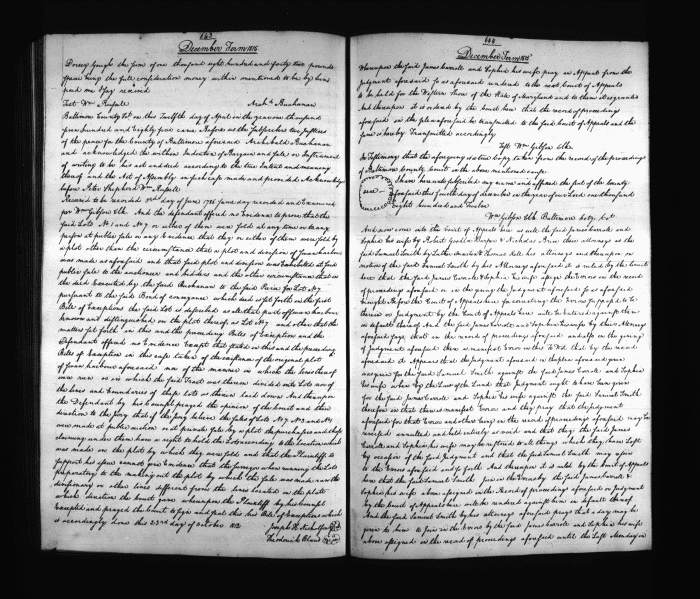 643
December Term 1815
Dorsey Gough the sum of one thousand eight hundred and forty two pounds
being the full consideration money within mentioned to be by him
paid me I say received
Test Wm Russell Archd. Buchanan
Baltimore County Sct on this Twelfth day of April in the year one thousand
seven hundred and Eighty five came before us the subscribers two Justices
of the peace for the County of Baltimore aforesaid Archibald Buchanan
and acknowledged the within Indenture of Bargain and Sale or Instrument
of writing to be his act and deed according to the true intent and meaning
thereof and the Act of Assembly in such case made and provided Acknowledged
before Peter Shepherd Wm Russell
Received to be recorded 3rd day of June 1785 same day recorded and Examined
per Wm Gibson Clk And the defendant offered no Evidence to prove that the
said Lots No 1 and No 7 or either of them were sold at any time or to any
person at public sale or any Evidence that they or either of them were sold by
a plot other than the circumstance that a plot and division of Gunn harbour
was made as aforesaid and that said plot and division was Exhibited at said
public sale to the auctioneer and bidders and the other circumstance that in
the deed Executed by the said Buchanan to the said for Lot No 7
pursuant to the said Bond of conveyance which deed is set forth in the first
Bill of Exceptions the said Lot is described as all that part of Gunn harbour
known and distinguished on the plot thereof as Lot No 7 and other than the
matters set forth in this and the preceding Bills of Exception and the
Defendant offered no Evidence Except that stated in this and the preceding
Bills of Exception in this case taken of the existence of the original plot
of Gunn harbour aforesaid nor of the manner in which the lines thereof
were run as in which the said Tract was thereon divided into Lots nor of
the lines and boundaries of these Lots as therein laid down And thereupon
the Defendant by his Counsel prayed the opinion of the Court and their
direction to the Jury that if the Jury believe the sales of Lots No 7 No 8 and No 1
were made at public auction or at private sale by a plot the purchasers and those
claiming under them have a right to hold the Lots according to the location which
was made on the plot by which they were sold and that the Plaintiff to
support his cannot give Evidence that the surveyor when running the Lots
preparatory to the making out the plot by which the sale was made ran the
divisionary or other lines different from the lines located on the plot
which direction the Court gave whereupon the Plaintiff by his Counsel
Excepted and prayed the Court to sign and seal this his Bill of Exceptions which
is accordingly done this 23rd day of October 1812 Joseph H. Nicholson
Theodorick Bland
644
December Term 1815
Whereupon the said James Carroll and Sophia his wife pray an Appeal from the
judgment aforesaid so as aforesaid rendered to the next Court of Appeals
to be held for the Western Shore of the State of Maryland and to them it is granted
And thereupon it is ordered by the Court here that the record of proceedings
aforesaid in the plea aforesaid be transmitted to the said Court of Appeals and the
same is hereby Transmitted accordingly
Test Wm Gibson Clk
In Testimony that the aforegoing is a true Copy taken from the record of the proceedings
of Baltimore County Court in the above mentioned cause
I have hereunto subscribed my name and affixed the seal of the County
aforesaid this fourth day of December in the year of our Lord one thousand
eight hundred and twelve
Wm Gibson Clk Baltimore Coty Ct
And now come into the Court of Appeals here as well the said James Carroll and
Sophia his wife by Robert Goodloe Harper & Nicholas Brice their attornies as the
said Samuel Smith by Luther Martin & Thomas Kell his attornies and thereupon on
motion of the said Samuel Smith by his Attorneys aforesaid it is ruled by the Court
here that the said James Carroll & Sophia his wife assign the Errors in the record
of proceedings aforesaid or in the giving the judgment aforesaid so as aforesaid
brought before the Court of Appeals here for correcting the Errors supposed to be
therein or Judgment by the Court of Appeals here will be Entered against them
in default thereof And the said James Carroll and Sophia his wife by their Attorneys
aforesaid say that in the record of proceedings aforesaid and also in the giving
of judgment aforesaid there is manifest Error in this To Wit that by the record
aforesaid it appears that the Judgment aforesaid in the plea aforesaid given
was given for the said Samuel Smith against the said James Carroll and Sophia
his wife when by the Law of the Land that Judgment ought to have been given
for the said James Carroll and Sophia his wife against the said Samuel Smith
therefore in that there is manifest Error and they pray that the judgment
aforesaid for that Error and others being in the record of proceedings aforesaid may be
reversed annulled and held entirely as void and that they the said James
Carroll and Sophia his wife may be restored to all things which they have lost
by occasion of the said Judgment and that the said Samuel Smith may rejoin
to the Errors aforesaid and so forth And thereupon it is ruled by the Court of Appeals
here that the said Samuel Smith join in the Errors by the said James Carroll &
Sophia his wife above assigned in the Record of proceedings aforesaid or Judgment
by the Court of Appeals here will be rendered against him in default thereof
And the said Samuel Smith by his attorneys aforesaid prays that a day may be
given to him to join in the Errors by the said James Carroll and Sophia his wife
above assigned in the record of proceedings aforesaid until the last Monday in